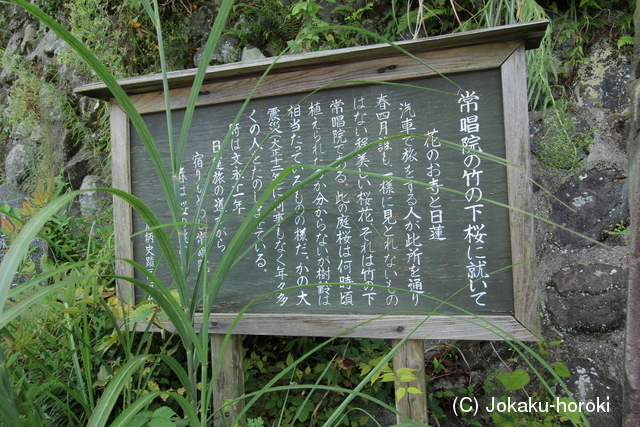 常唱院の竹の下桜に就いて
花のお寺と日蓮
汽車で旅をする人が此所を通り
春四月誰も一様に見とれないもの
はない程美しい桜花それは竹の下
常唱院である。此の庭桜は何時頃
植えられたか分からないが樹齢は
相当たっているものだ。かの大
震災（大十二）にも何事もなく年々多
くの人々をたのしませている。
時は文永十一年
日蓮旅の道すがら
宿り
桜
(C) Jokaku-horoki